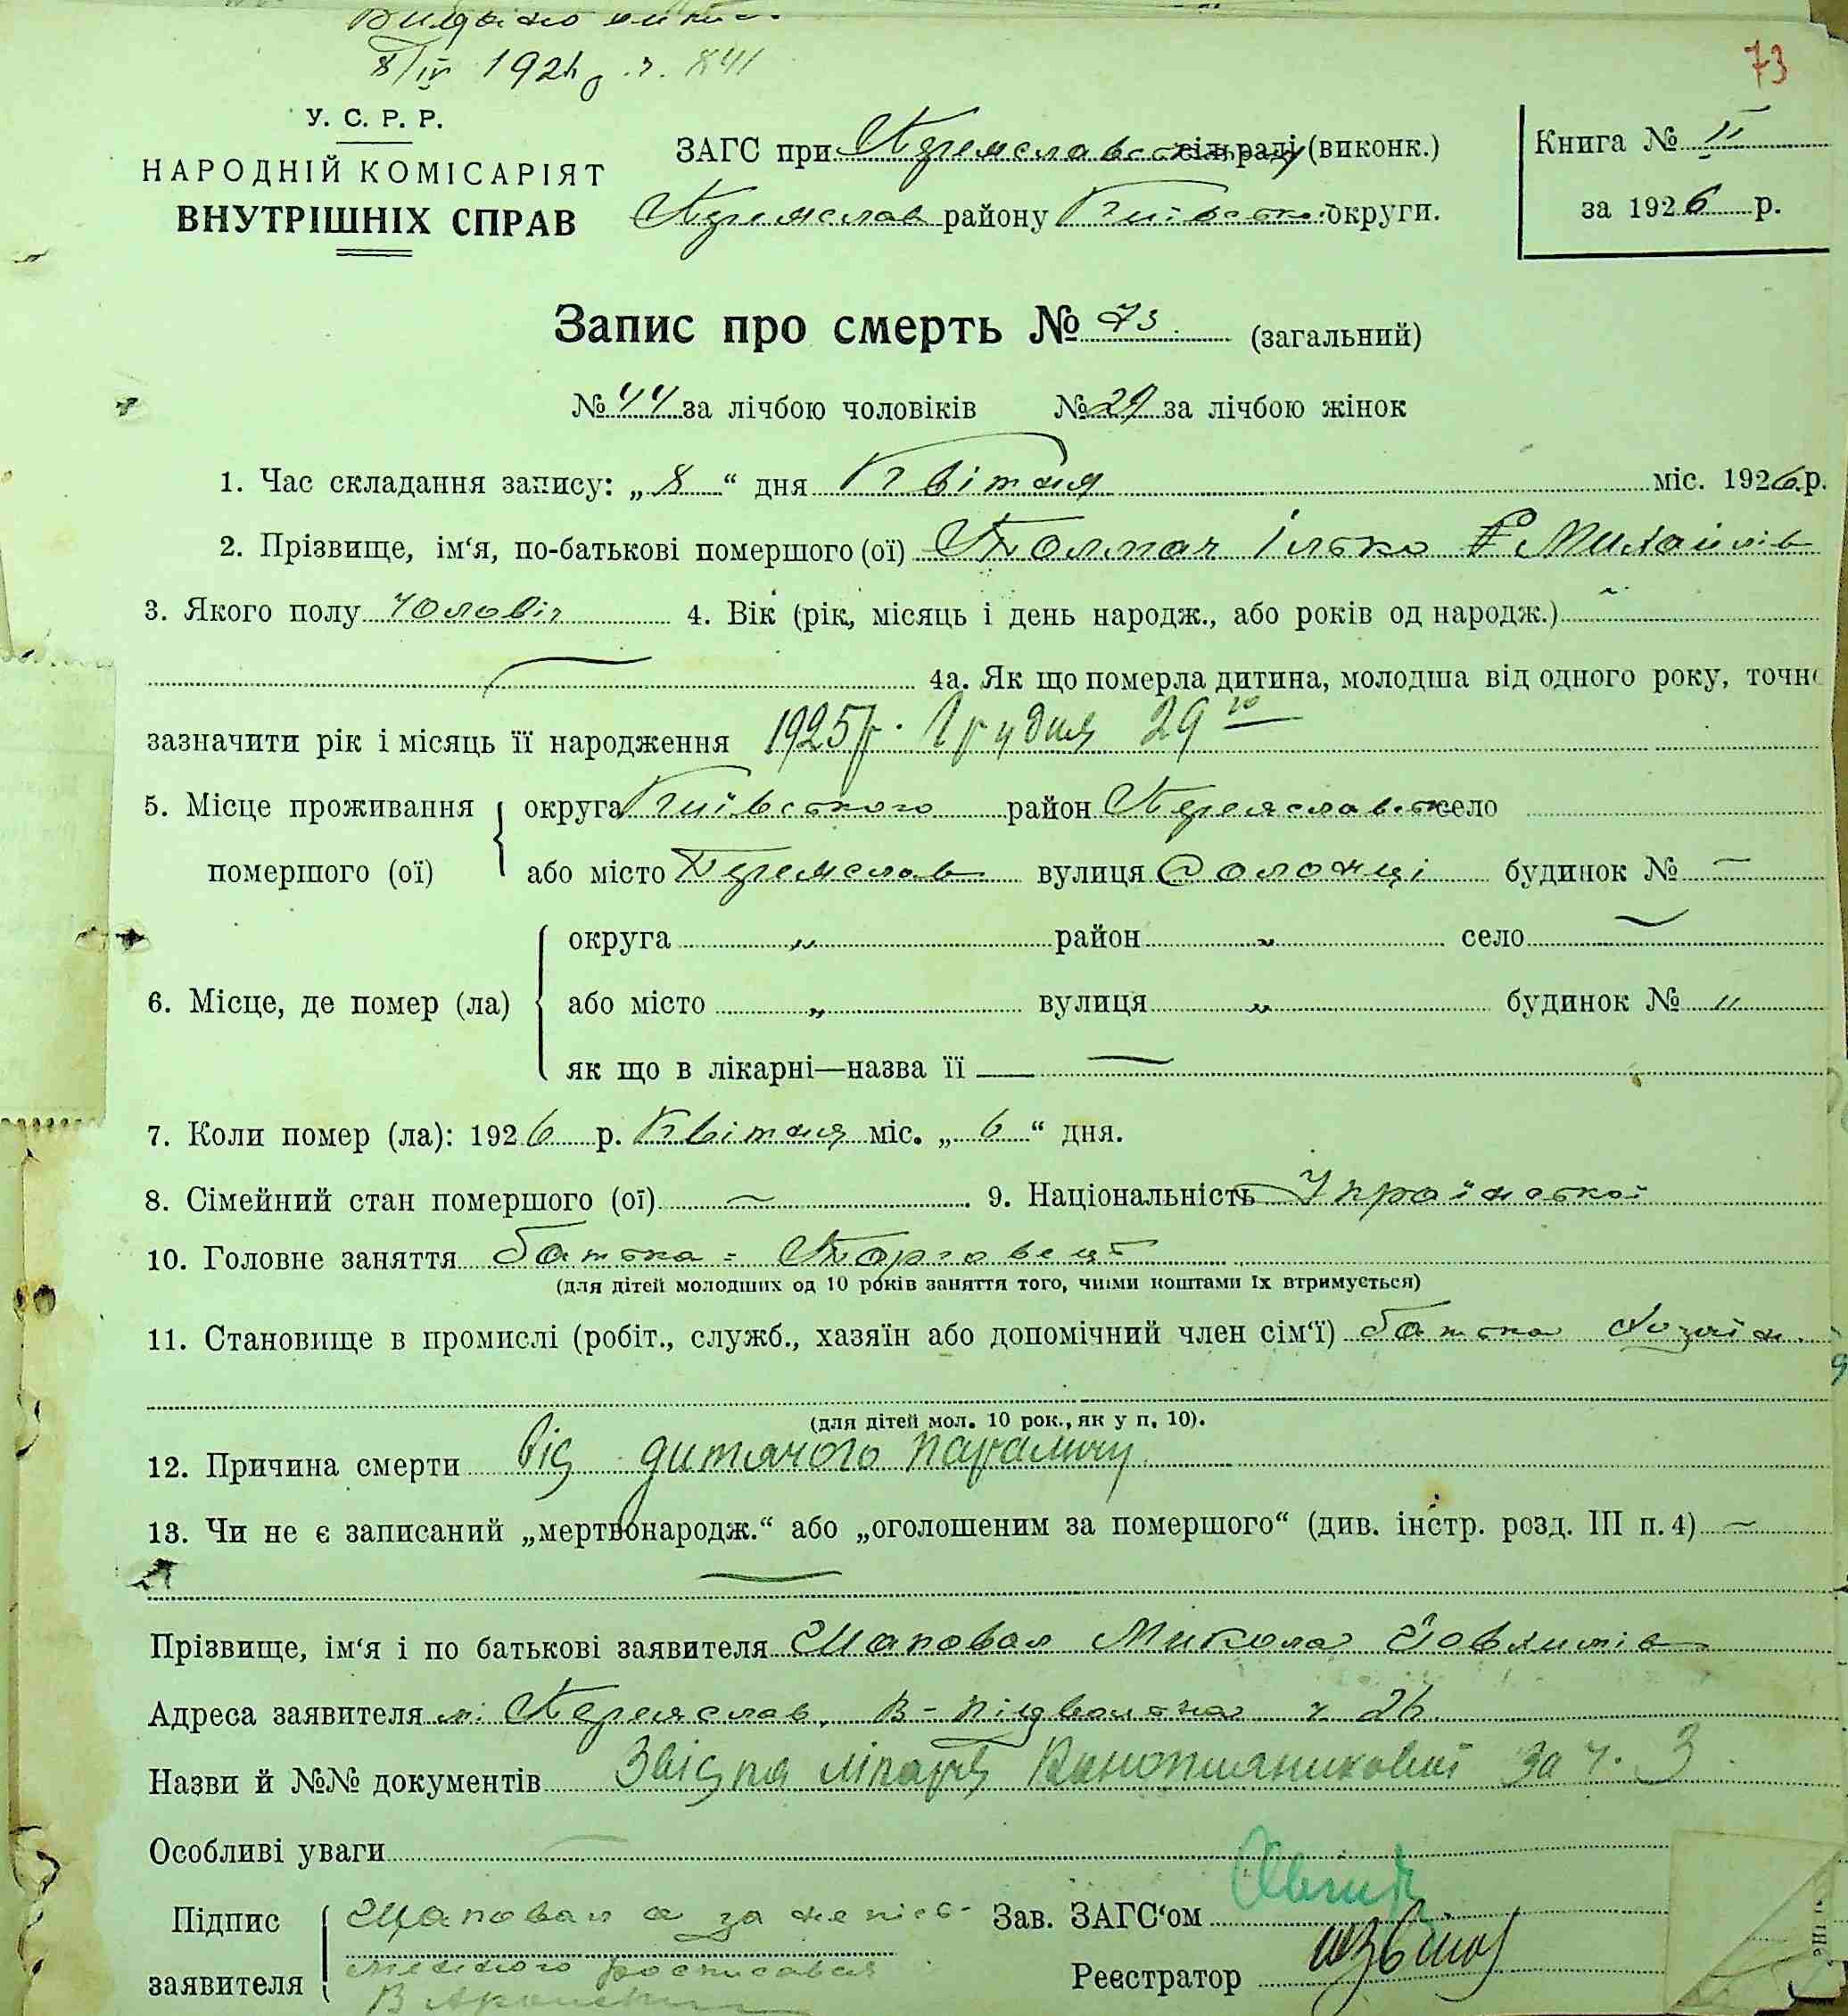 8/IV 192 р. 841
73
У. С. Р. Р.
НАРОДНІЙ КОМІСАРІЯТ
ВНУТРІШНІХ СПРАВ
ЗАГС при Переяславськ сільраді (виконк.)
Переяслав району Київсько округи.
Книга № II
за 1926 р.
Запис про смерть № 73 (загальний)
№ 44 за лічбою чоловіків № 29 за лічбою жінок
1. Час складання запису: „8“ дня Квітня міс. 1926 р.
2. Прізвище, ім‘я, по-батькові помершого (ої) Толмач Ілько Михайлів
3. Якого полу чоловіч 4. Вік (рік, місяць і день народж., або років од народж.)
4а. Як що померла дитина, молодша від одного року, точно
зазначити рік і місяць її народження 1925 р. Грудня 29го
5. Місце проживання округа Київського район Переяславськ село
помершого (ої) або місто Переяслав вулиця Солонці будинок № —
округа „ район „ село —
6. Місце, де помер (ла) або місто „ вулиця „ будинок № „
як що в лікарні—назва її —
7. Коли помер (ла): 1926 р. Квітня міс. „6“ дня.
8. Сімейний стан помершого (ої) — 9. Національність Української
10. Головне заняття батька - Торговець
(для дітей молодших од 10 років заняття того, чиїми коштами їх втримується)
11. Становище в промислі (робіт., служб., хазяїн або допомічний член сім‘ї) батька хазяїн
(для дітей мол. 10 рок., як у п. 10).
12. Причина смерти від дитячого паралічу
13. Чи не є записаний „мертвонародж.“ або „оголошеним за помершого“ (див. інстр. розд. III п. 4) —
—
Прізвище, ім‘я і по батькові заявителя Шаповал Микола Йовхимів
Адреса заявителя м. Переяслав, В-Підвальна
Назви й №№ документів Звістка лікаря за ч. 3
Особливі уваги
Підпис Шаповал а за непис-
Зав. ЗАГС‘ом
заявителя росписався
Реєстратор